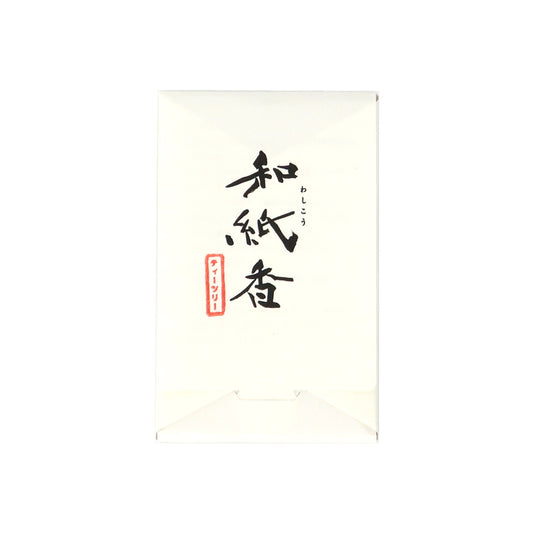 和紙香
わしこう
ティーツリー